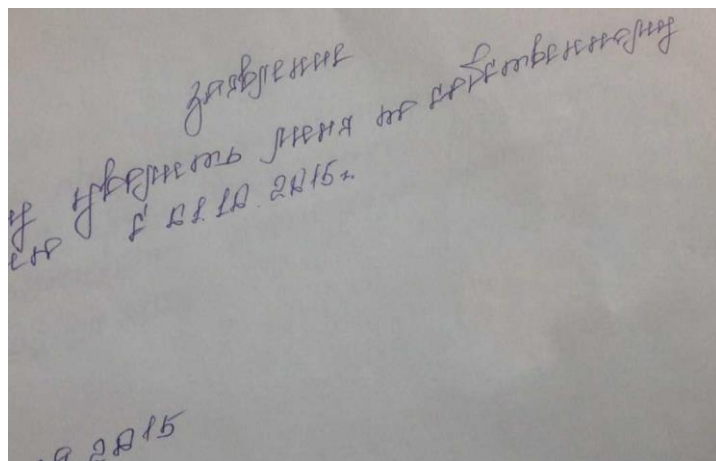 заявление
у уволить меня по собственному
ию с 01.10.2015г.
9.2015